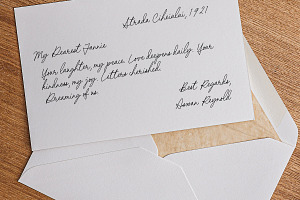 Strada Ciheialui, 1921
My Dearest Fannie
Your laughter, my peace. Love deepens daily. Your
kindness, my joy. Letters cherished.
Dreaming of us.
Best Regards,
Aswan Reynold